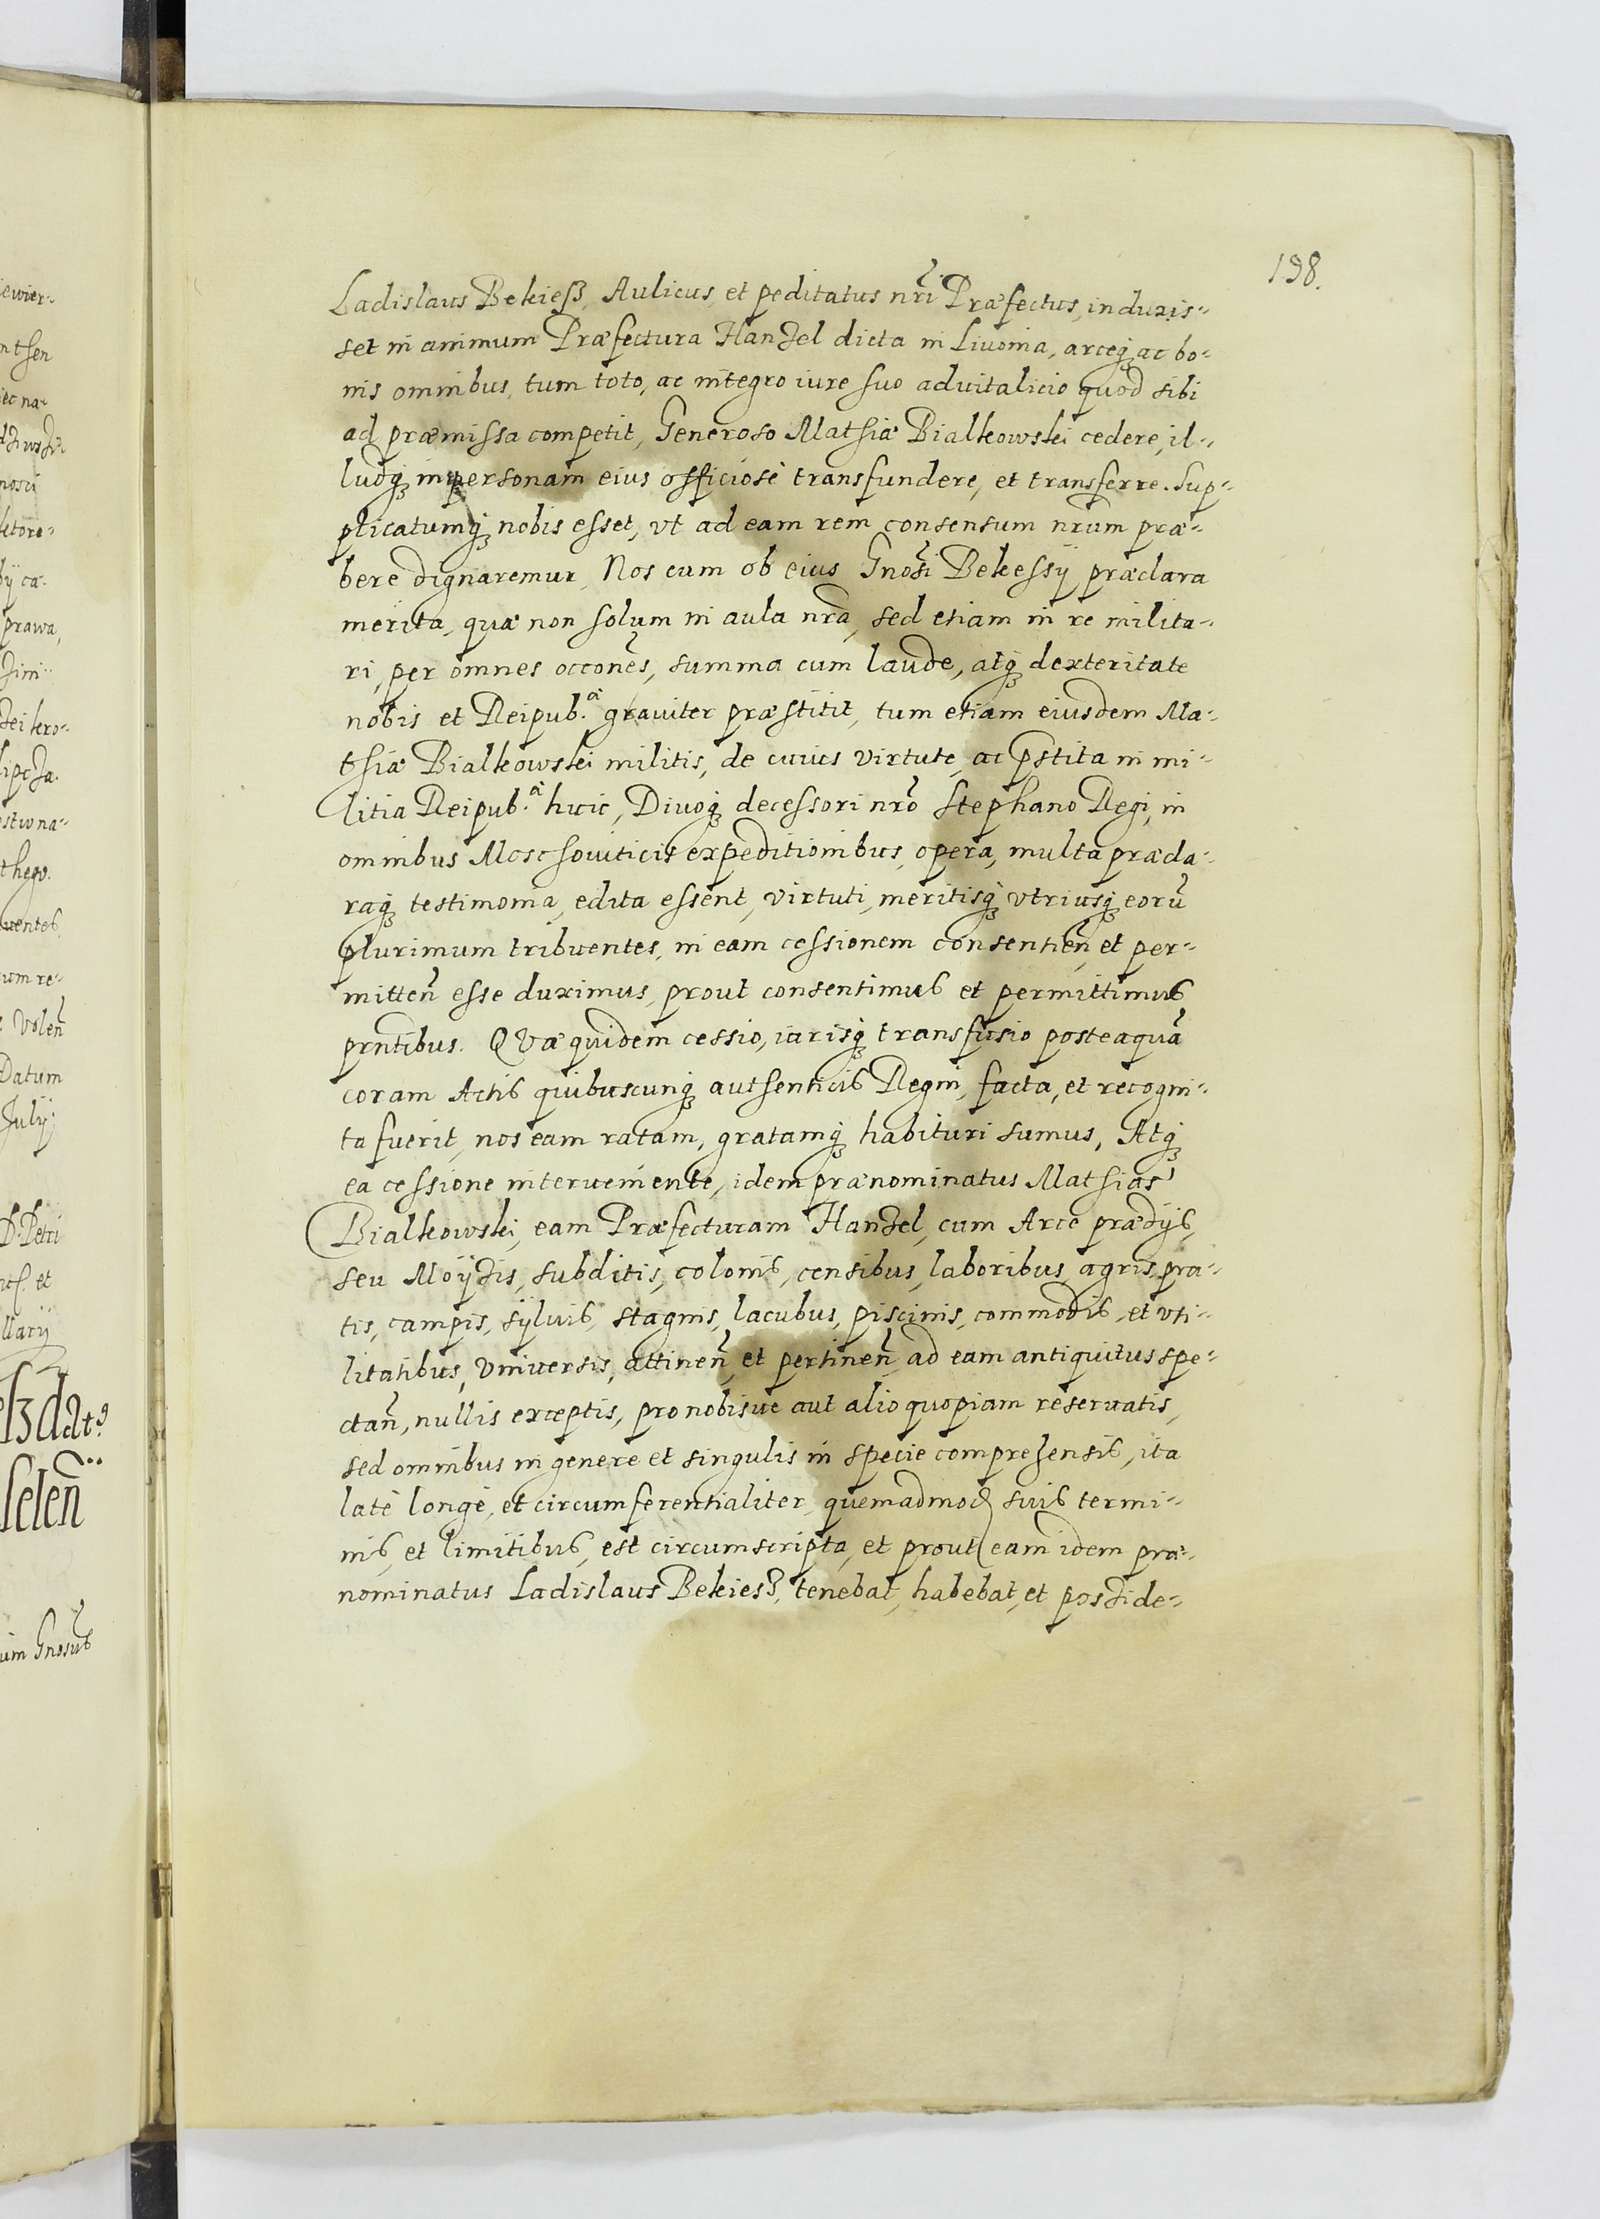 198.
Ladislaus Bekiesß, Aulicus, et peditatus nr̃i Præfectus, induxis-
set in animum Præfectura Hanzel dicta in Liuonia, arceq̨ ac bo-
nis omnibus, tum toto, ac integro iure suo aduitalicio quod sibi
ad præmissa competit, Generoso Mathiæ Bialkowski cedere, il-
ludq̨ in personam eius officiosè transfundere, et transferre. Sup-
plicatumq̨ nobis esset, vt ad eam rem consensum nrũm præ-
bere dignaremur, Nos cum ob eius Gnosĩ Bekessÿ præclara
merita, quæ non solum in aula nrã, sed etiam in re milita-
ri, per omnes occoñes, summa cum laude, atq̨ dexteritate
nobis et Reipub.ᵃ grauiter præstitit, tum etiam eiusdem Ma-
thiæ Bialkowski militis, de cuius virtute, ac p̃stita in mi-
litia Reipub.ᵃ huic, Diuoq̨ decessori nrõ Stephano Regi, in
omnibus Moschouiticis expeditionibus, opera, multa præcla-
raq̨ testimonia, edita essent, virtuti, meritisq̨ vtriusq̨ eorũ
plurimum tribuentes, in eam cessionem consentieñ, et per-
mitteñ esse duximus, prout consentimus et permittimus
prñtibus. QVæ quidem cessio, iurisq̨ transfusio posteaquã
coram Actis quibuscunq̨ authenticis Regni, facta, et recogni-
ta fuerit, nos eam ratam, gratamq̨ habituri sumus, Atq̨
ea cessione interueniente, idem prænominatus Mathias
Bialkowski, eam Præfecturam Hanzel, cum Arce prædÿs,
seu Moÿzis, subditis, colonis, censibus, laboribus, agris, pra-
tis, campis, sÿluis, stagnis, lacubus, piscinis, commodis, et vti-
litatibus, vniuersis, attineñ, et pertineñ, ad eam antiquitus spe-
ctañ, nullis exceptis, pro nobisue aut alio quopiam reseruatis,
sed omnibus in genere et singulis in specie comprehensis, ita
latè longè, et circumferentialiter, quemadmod suis termi-
nis, et limitibus, est circumscripta, et prout eam idem præ-
nominatus Ladislaus Bekiesß, tenebat, habebat, et posside-